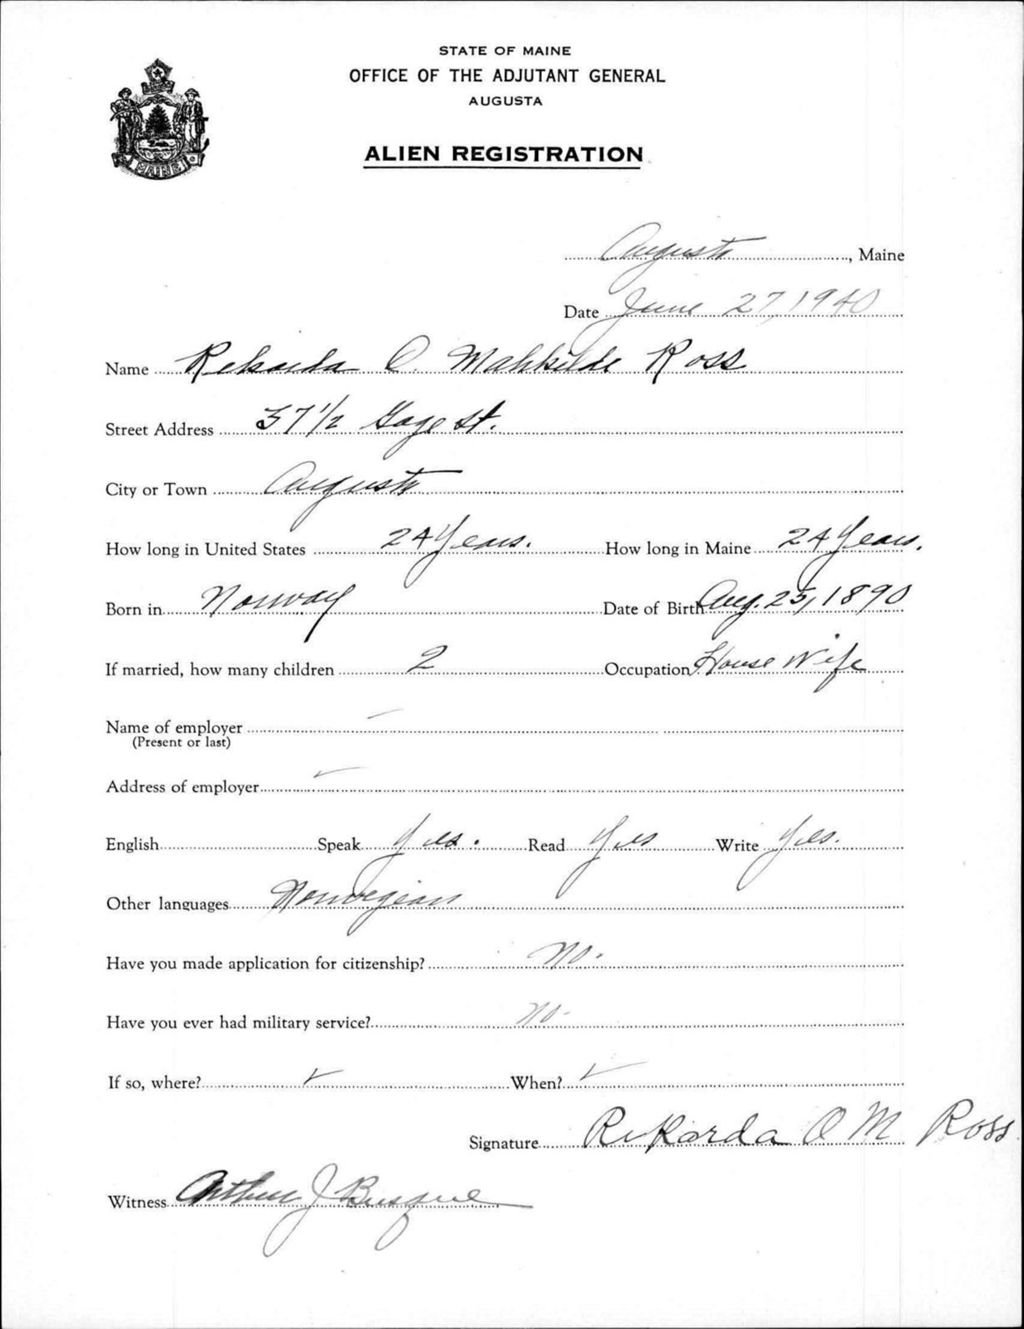 STATE OF MAINE
OFFICE OF THE ADJUTANT GENERAL
AUGUSTA
ALIEN REGISTRATION
MAINE
Augusta, Maine
Date June 27, 1940
Name Rekorda O. Mahkilde Ross
Street Address 37 1/2 Gage St.
City or Town Augusta
How long in United States 24 Years. How long in Maine 24 Years.
Born in Norway Date of Birth Aug. 25, 1890
If married, how many children 2 Occupation House Wife
Name of employer
(Present or last)
Address of employer
English Speak Yes. Read Yes Write Yes.
Other languages Norwegian
Have you made application for citizenship? No.
Have you ever had military service? No.
If so, where? When?
Signature Rekorda O M Ross
Witness Arthur J Busque